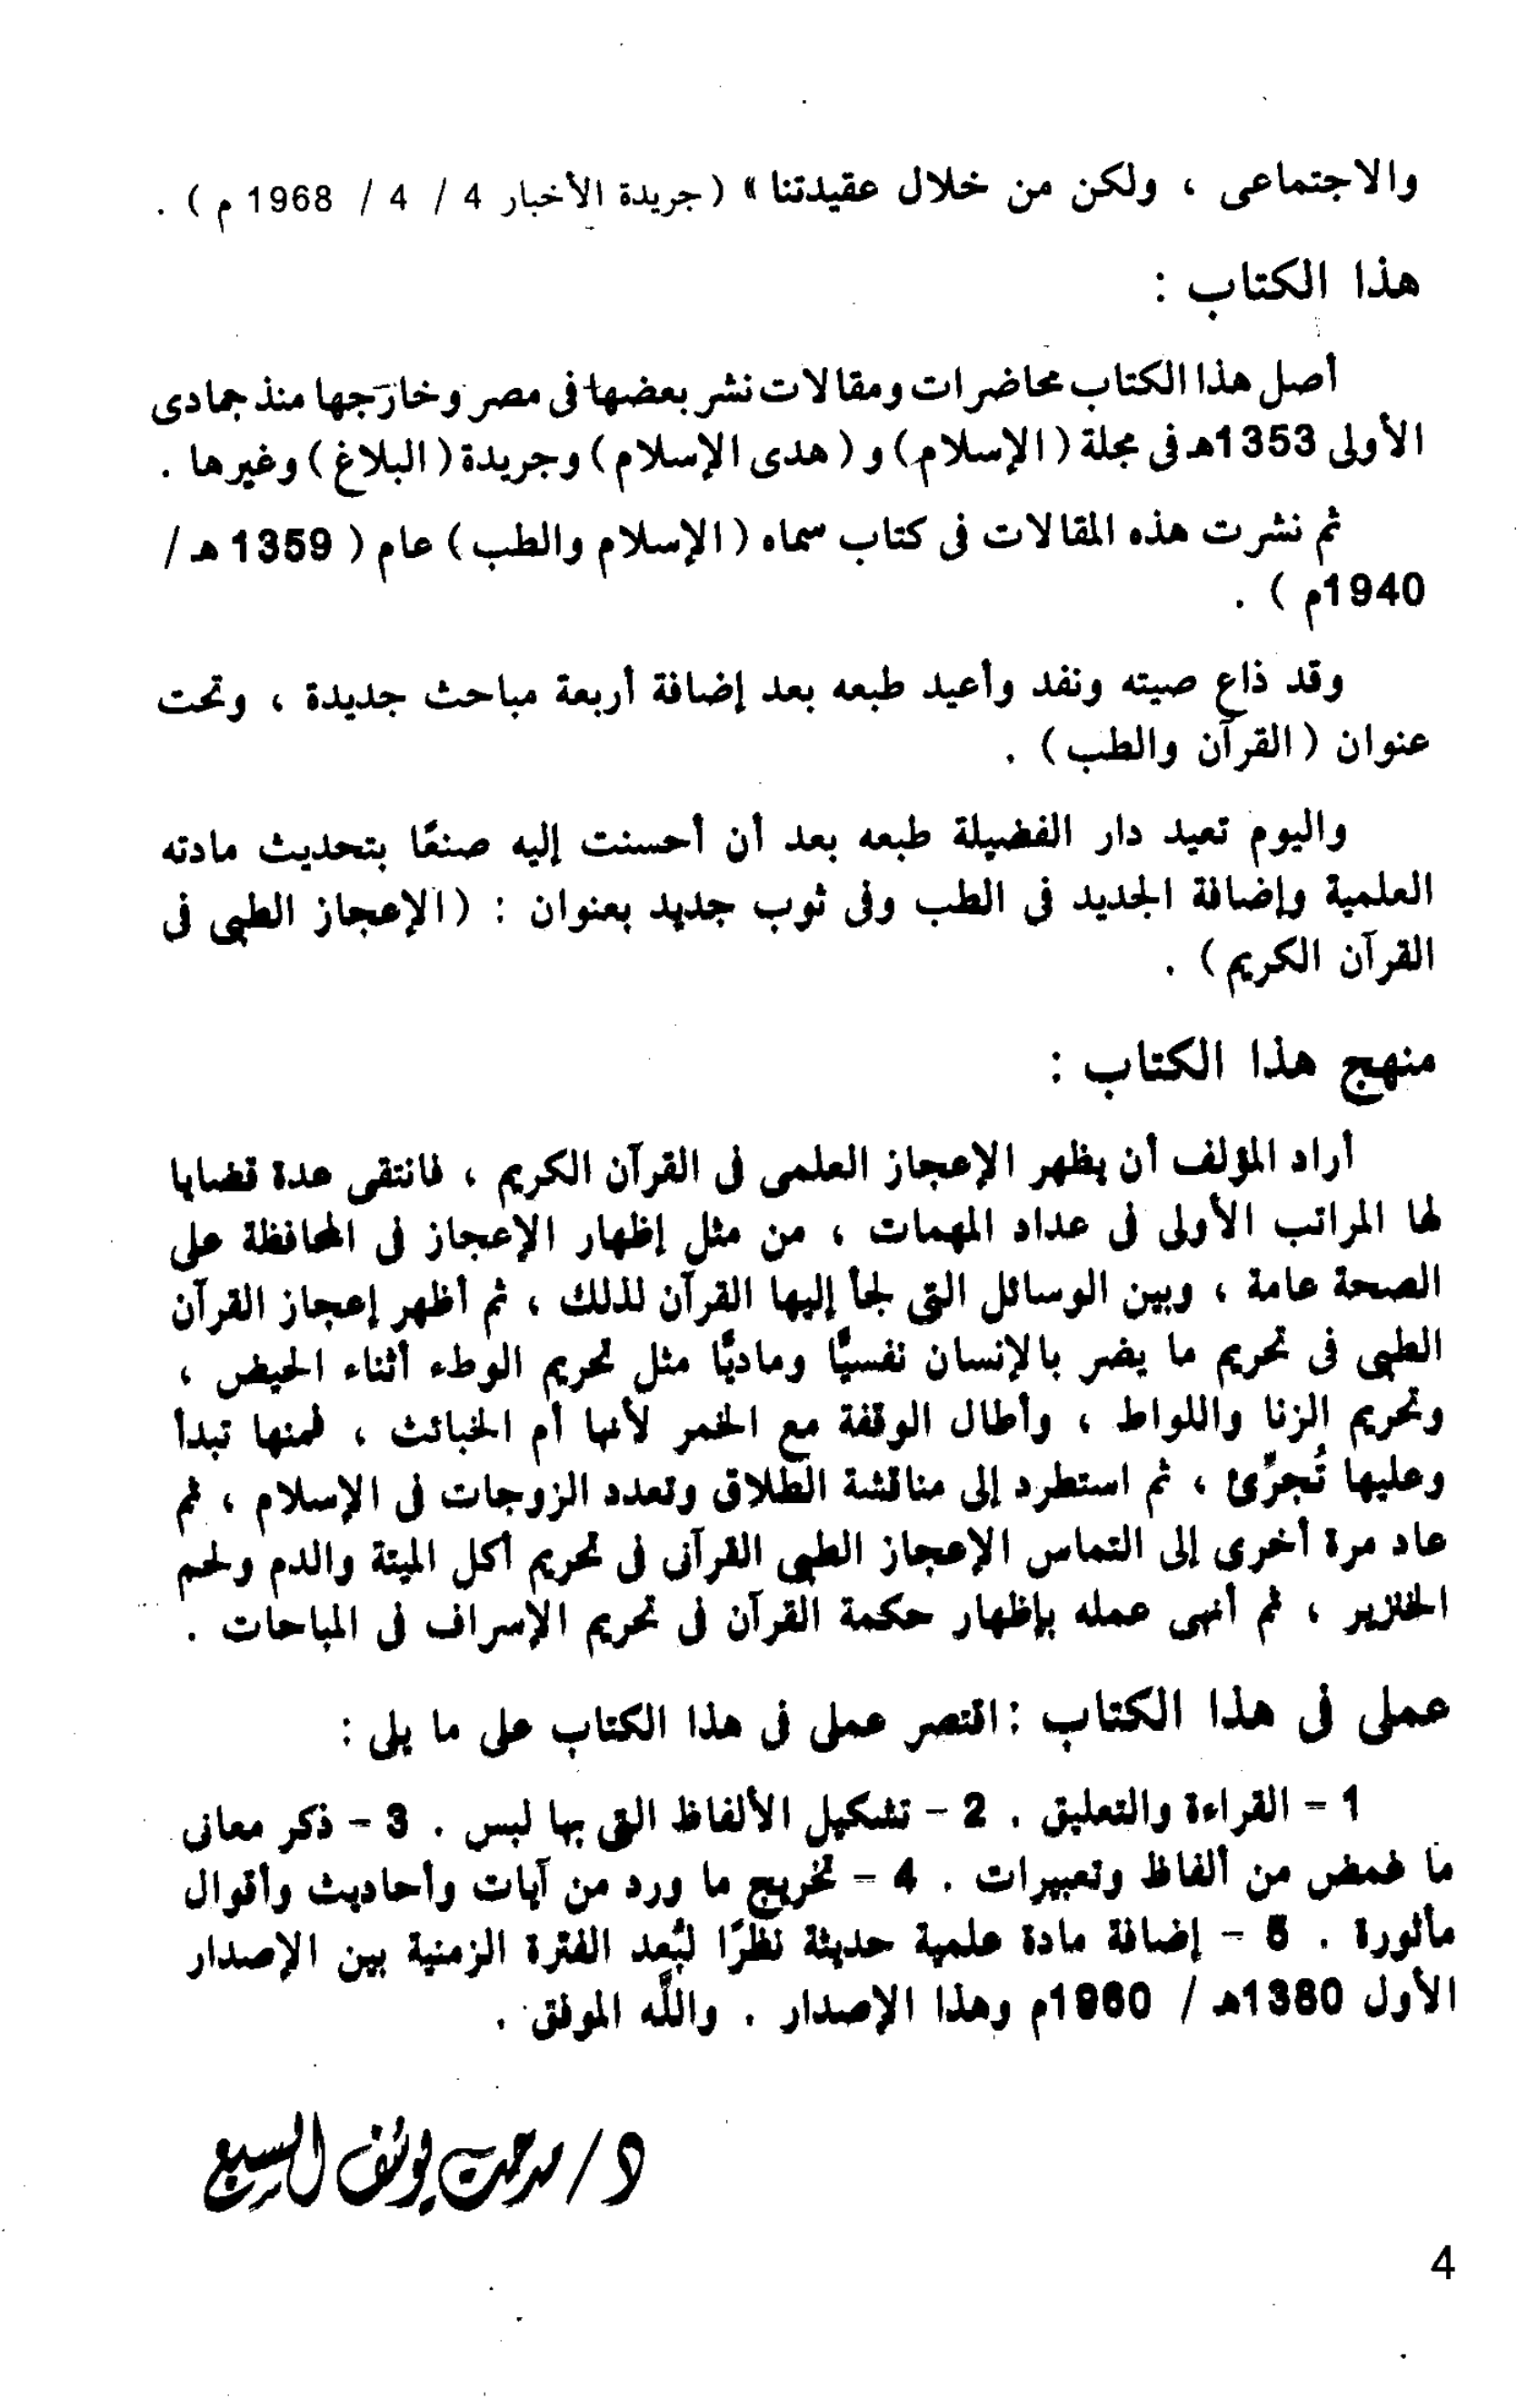 والاجتماعى ، ولكن من خلال عقيدتنا » ( جريدة الأخبار 4 / 4 / 1968 م ) .
هذا الكتاب :
أصل هذا الكتاب محاضرات ومقالات نشر بعضها فى مصر وخارجها منذ جمادى
الأولى 1353هـ فى مجلة ( الإسلام ) و ( هدى الإسلام ) وجريدة ( البلاغ ) وغيرها .
ثم نشرت هذه المقالات فى كتاب سماه ( الإسلام والطب ) عام ( 1359 هـ /
1940م ) .
وقد ذاع صيته ونفد وأعيد طبعه بعد إضافة أربعة مباحث جديدة ، وتحت
عنوان ( القرآن والطب ) .
واليوم تعيد دار الفضيلة طبعه بعد أن أحسنت إليه صنعًا بتحديث مادته
العلمية وإضافة الجديد فى الطب وفى ثوب جديد بعنوان : ( الإعجاز الطبى فى
القرآن الكريم ) .
منهج هذا الكتاب :
أراد المؤلف أن يظهر الإعجاز العلمى فى القرآن الكريم ، فانتقى عدة قضايا
لها المراتب الأولى فى عداد المهمات ، من مثل إظهار الإعجاز فى المحافظة على
الصحة عامة ، وبين الوسائل التى لجأ إليها القرآن لذلك ، ثم أظهر إعجاز القرآن
الطبى فى تحريم ما يضر بالإنسان نفسيًّا وماديًّا مثل تحريم الوطء أثناء الحيض ،
وتحريم الزنا واللواط ، وأطال الوقفة مع الخمر لأنها أم الخبائث ، فمنها تبدأ
وعليها تُجرِّئ ، ثم استطرد إلى مناقشة الطلاق وتعدد الزوجات فى الإسلام ، ثم
عاد مرة أخرى إلى التماس الإعجاز الطبى القرآنى فى تحريم أكل الميتة والدم ولحم
الخنزير ، ثم أنهى عمله بإظهار حكمة القرآن فى تحريم الإسراف فى المباحات .
عملى فى هذا الكتاب : اقتصر عملى فى هذا الكتاب على ما يلى :
1 - القراءة والتعليق . 2 - تشكيل الألفاظ التى بها لبس . 3 - ذكر معانى
ما غمض من ألفاظ وتعبيرات . 4 - تخريج ما ورد من آيات وأحاديث وأقوال
مأثورة . 5 - إضافة مادة علمية حديثة نظرًا لبُعد الفترة الزمنية بين الإصدار
الأول 1380هـ / 1960م وهذا الإصدار . واللَّه الموفق .
د / مدحت يوسف السبع
4